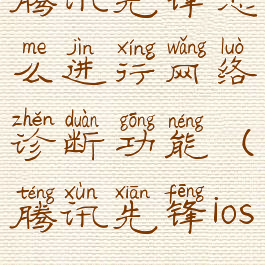 腾讯先锋怎
me jìn xíng wǎng luò
么进行网络
zhěn duàn gōng néng
诊断功能(
téng xùn xiān fēng
腾讯先锋ios